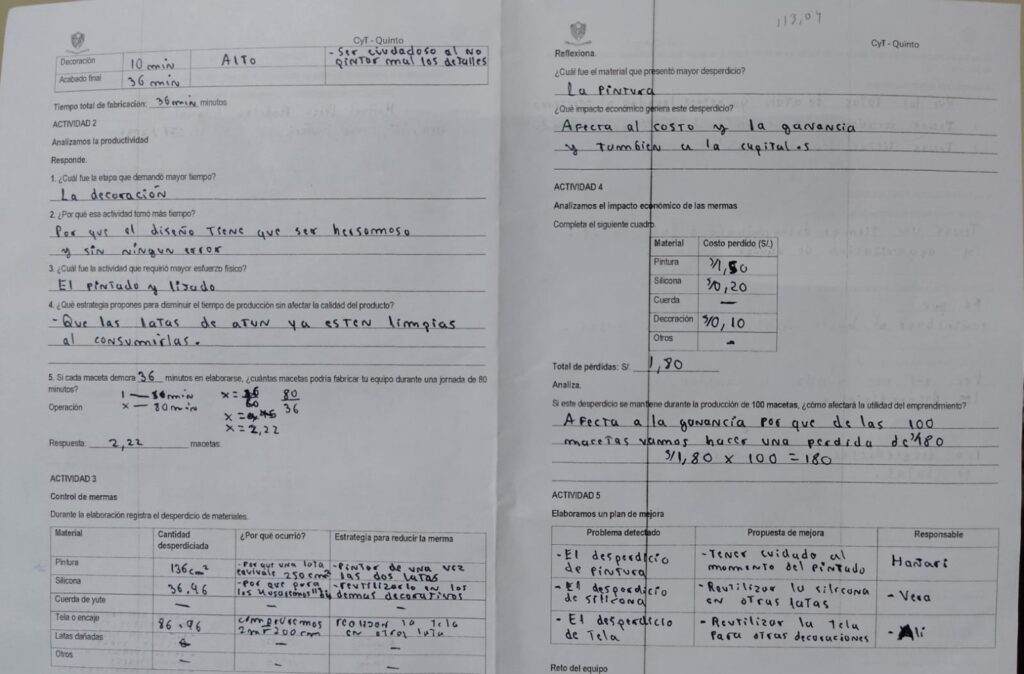 CyT - Quinto
Decoración 10 min Alto - Ser ciudadoso al no pintar mal los detalles
Acabado final 36 min
Tiempo total de fabricación: 36 min minutos
ACTIVIDAD 2
Analizamos la productividad
Responde.
1. ¿Cuál fue la etapa que demandó mayor tiempo?
La decoración
2. ¿Por qué esa actividad tomó más tiempo?
Por que el diseño tiene que ser hersomoso
y sin ningun error
3. ¿Cuál fue la actividad que requirió mayor esfuerzo físico?
El pintado y lijado
4. ¿Qué estrategia propones para disminuir el tiempo de producción sin afectar la calidad del producto?
- Que las latas de atun ya esten limpias
al consumirlas.
5. Si cada maceta demora 36 minutos en elaborarse, ¿cuántas macetas podría fabricar tu equipo durante una jornada de 80
minutos?
Operación
1 — 36 min
x — 80 min
80
36
x = 2,22
Respuesta: 2,22 macetas
ACTIVIDAD 3
Control de mermas
Durante la elaboración registra el desperdicio de materiales.
Material Cantidad desperdiciada ¿Por qué ocurrió? Estrategia para reducir la merma
Pintura 136 cm² - Por que una lata equivale 250 cm² - Pintar de una vez las dos latas
Silicona 36,96 - Por que para los - reutilizarlo en los demas decorativos
Cuerda de yute — — —
Tela o encaje 86,96 compraremos 2m = 200 cm la tela en otras lata
Latas dañadas — —
Otros — — —
113,04
CyT - Quinto
Reflexiona.
¿Cuál fue el material que presentó mayor desperdicio?
La pintura
¿Qué impacto económico genera este desperdicio?
Afecta al costo y la ganancia
y tambien a la capital.s
ACTIVIDAD 4
Analizamos el impacto económico de las mermas
Completa el siguiente cuadro.
Material Costo perdido (S/.)
Pintura S/1,50
Silicona S/0,20
Cuerda —
Decoración S/0,10
Otros -
Total de pérdidas: S/ 1,80
Analiza.
Si este desperdicio se mantiene durante la producción de 100 macetas, ¿cómo afectará la utilidad del emprendimiento?
Afecta a la ganancia por que de las 100
macetas vamos hacer una perdida de S/180
S/1,80 x 100 = 180
ACTIVIDAD 5
Elaboramos un plan de mejora
Problema detectado Propuesta de mejora Responsable
- El desperdicio de pintura - Tener cuidado al momento del pintado Hañari
- El desperdicio de silicona - Reutilizar la silicona en otras latas - Vera
- El desperdicio de Tela - Reutilizar la tela para otras decoraciones - Ali
Reto del equipo